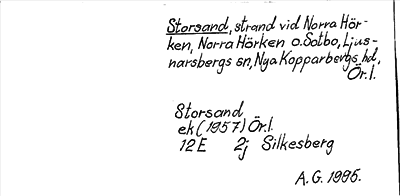 Storsand, strand vid Norra Hör-
ken, Norra Hörken o. Sotbo, Ljus-
narsbergs sn, Nya Kopparbergs hd,
Ör.l.
Storsand
ek (1957) Ör.l.
12E 2j Silkesberg
A.G. 1995.